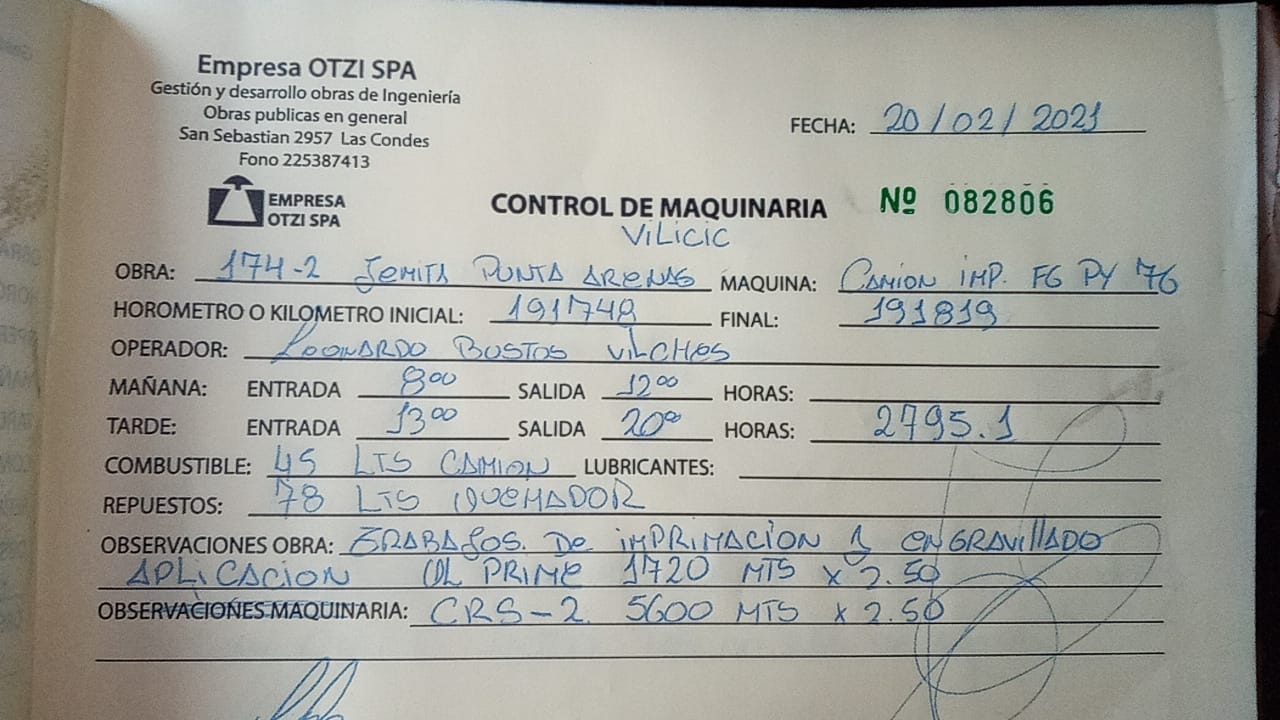 Empresa OTZI SPA
Gestión y desarrollo obras de Ingeniería
Obras publicas en general
San Sebastian 2957 Las Condes
Fono 225387413
FECHA: 20/02/2021
EMPRESA
OTZI SPA
CONTROL DE MAQUINARIA Nº 082806
ViLicic
OBRA: 174-2 PUNTA ARENAS MAQUINA: CAMION IMP. FG PY 76
HOROMETRO O KILOMETRO INICIAL: 191748 FINAL: 191819
OPERADOR: LeoNARDO BUSTOS ViLCHES
MAÑANA: ENTRADA 800 SALIDA 1200 HORAS:
TARDE: ENTRADA 1300 SALIDA 2000 HORAS: 2795.1
COMBUSTIBLE: 45 LTS CAMION LUBRICANTES:
REPUESTOS: 78 LTS QUEMADOR
OBSERVACIONES OBRA: TRABAJOS. De iMPRIMACION y eNGRAVillADO
APLICACION PRIME 1720 MTS x 2.50
OBSERVACIONES MAQUINARIA: CRS-2. 5600 MTS x 2.50